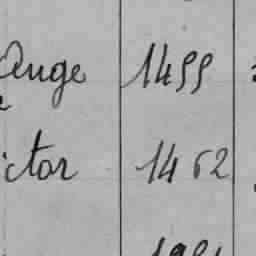 Ange 1499
ictor 1462